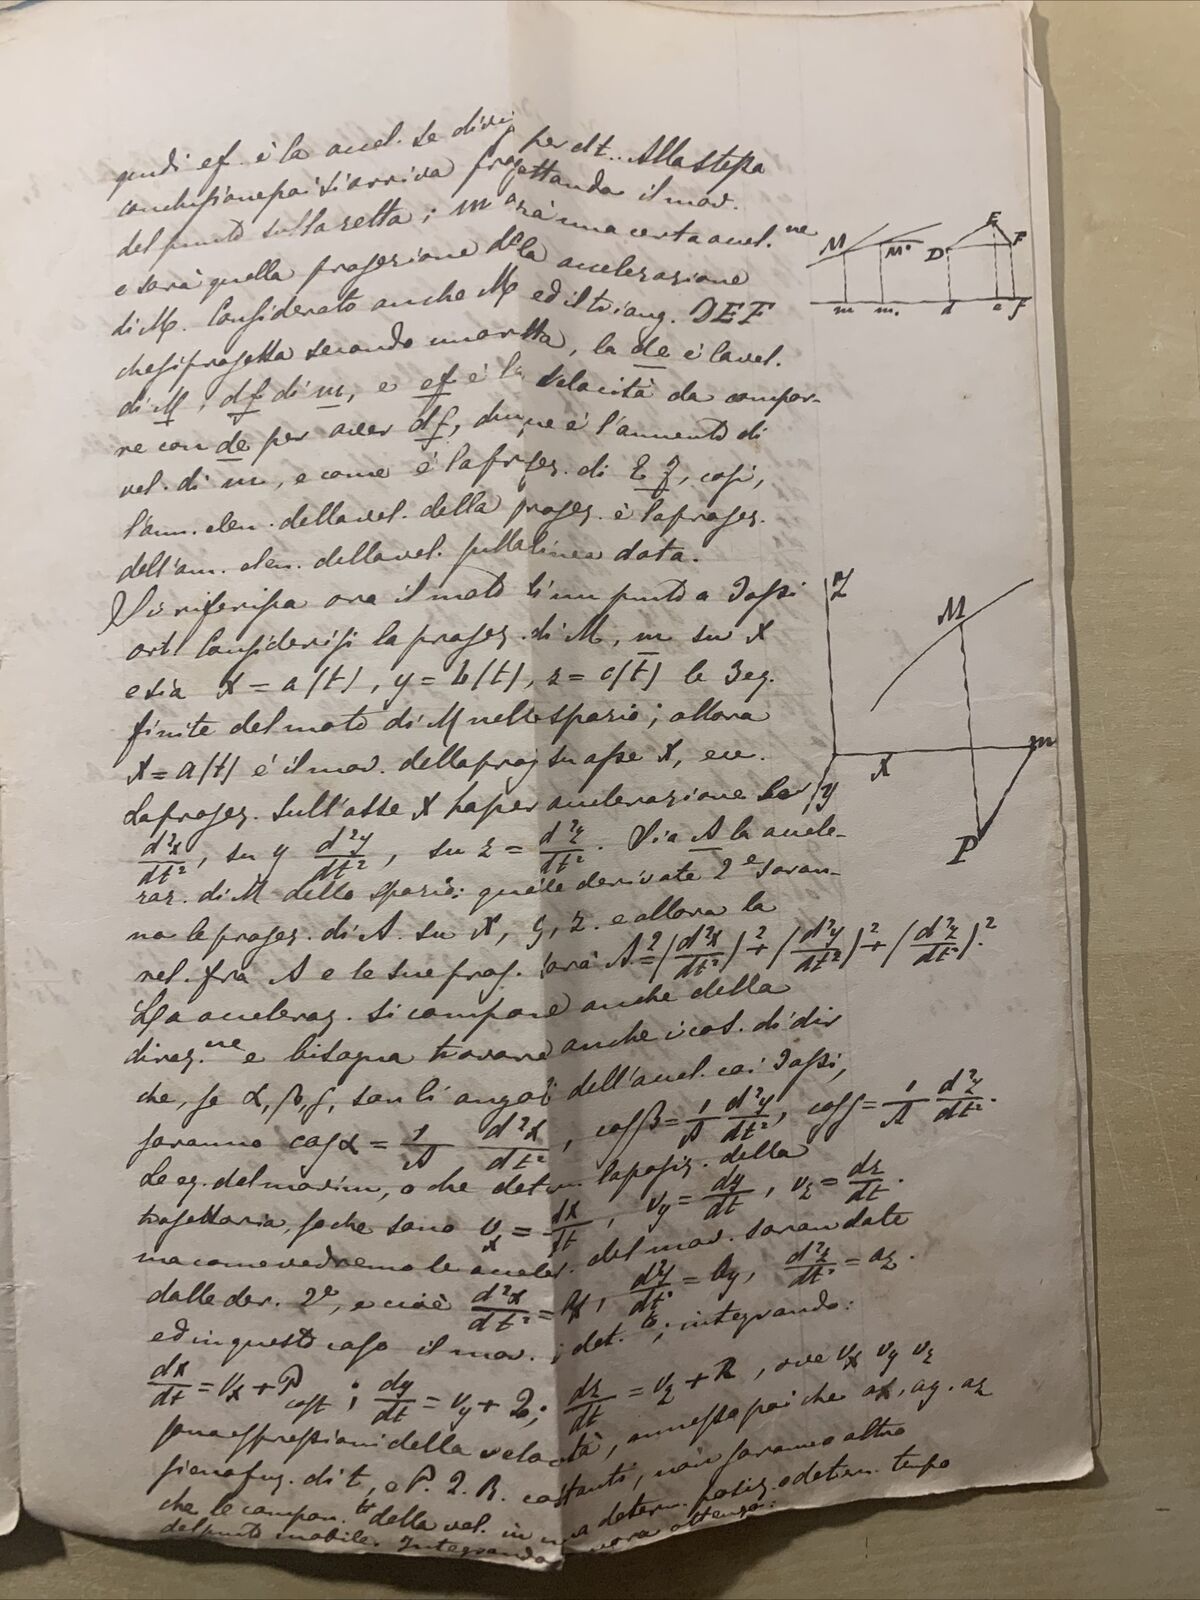 quindi ef è la accel. se divi. per dt.. Alla stessa
conchiusione poi si arriva progettando il mov.
del punto sulla retta; m avrà una certa accel.ne
e sarà quella projezione della accelerazione
di M. Considerato anche M ed il triang. DEF
che si projetta secondo una retta, la de è la vel.
di M; df di m, e ef è la velocità da compor-
re con de per aver df, dunque è l'aumento di
vel. di m, e come è la projez. di EF, così,
l'aum. elem. della vel. della projez. è la projez.
dell'aum. elem. della vel. sulla linea data.
Si riferisca ora il moto di un punto a 3 assi
ort. Considerisi la projez. di M, m su X
e sia X = a(t), y = b(t), z = c(t) le 3 eq.
finite del moto di M nello spazio; allora
X = a(t) è il mov. della proj su asse X, ecc.
La projez. sull'asse X ha per accelerazione
d²x/dt², su y d²y/dt², su z = d²z/dt². Sia A la accele-
raz. di M dello spazio: quelle derivate 2e saran-
no le projez. di A su X, y, z. e allora la
rel. fra A e le sue proj. sarà A² = (d²x/dt²)² + (d²y/dt²)² + (d²z/dt²)².
La acceleraz. si compone anche della
direz.ne e bisogna trovare anche i cos. di dir
che, se α, β, γ, son li angoli dell'accel. coi 3 assi,
saranno cosα = 1/A d²x/dt², cosβ = 1/A d²y/dt², cosγ = 1/A d²z/dt².
Le eq. del movim, o che determ. la posiz. della
trajettoria, so che sono vx = dx/dt, vy = dy/dt, vz = dz/dt.
ma come vedremo le acceler. del mov. saran date
dalle der. 2e, e cioè d²x/dt² = ax, d²y/dt² = ay, d²z/dt² = az.
ed in questo caso il mov. è det.to; integrando:
dx/dt = vx + P cost; dy/dt = vy + Q; dz/dt = vz + R, ove vx vy vz
sono espressioni della velocità, ammesso poi che ax, ay, az
sieno fuz. di t, e P. Q. R. costanti, non saranno altro
che le compon.ti della vel. in una determ. posiz. o determ. tempo
del punto mobile. Integrando ancora ottengo:
M M' D E F
m m, d e f
Z M
X m
y P